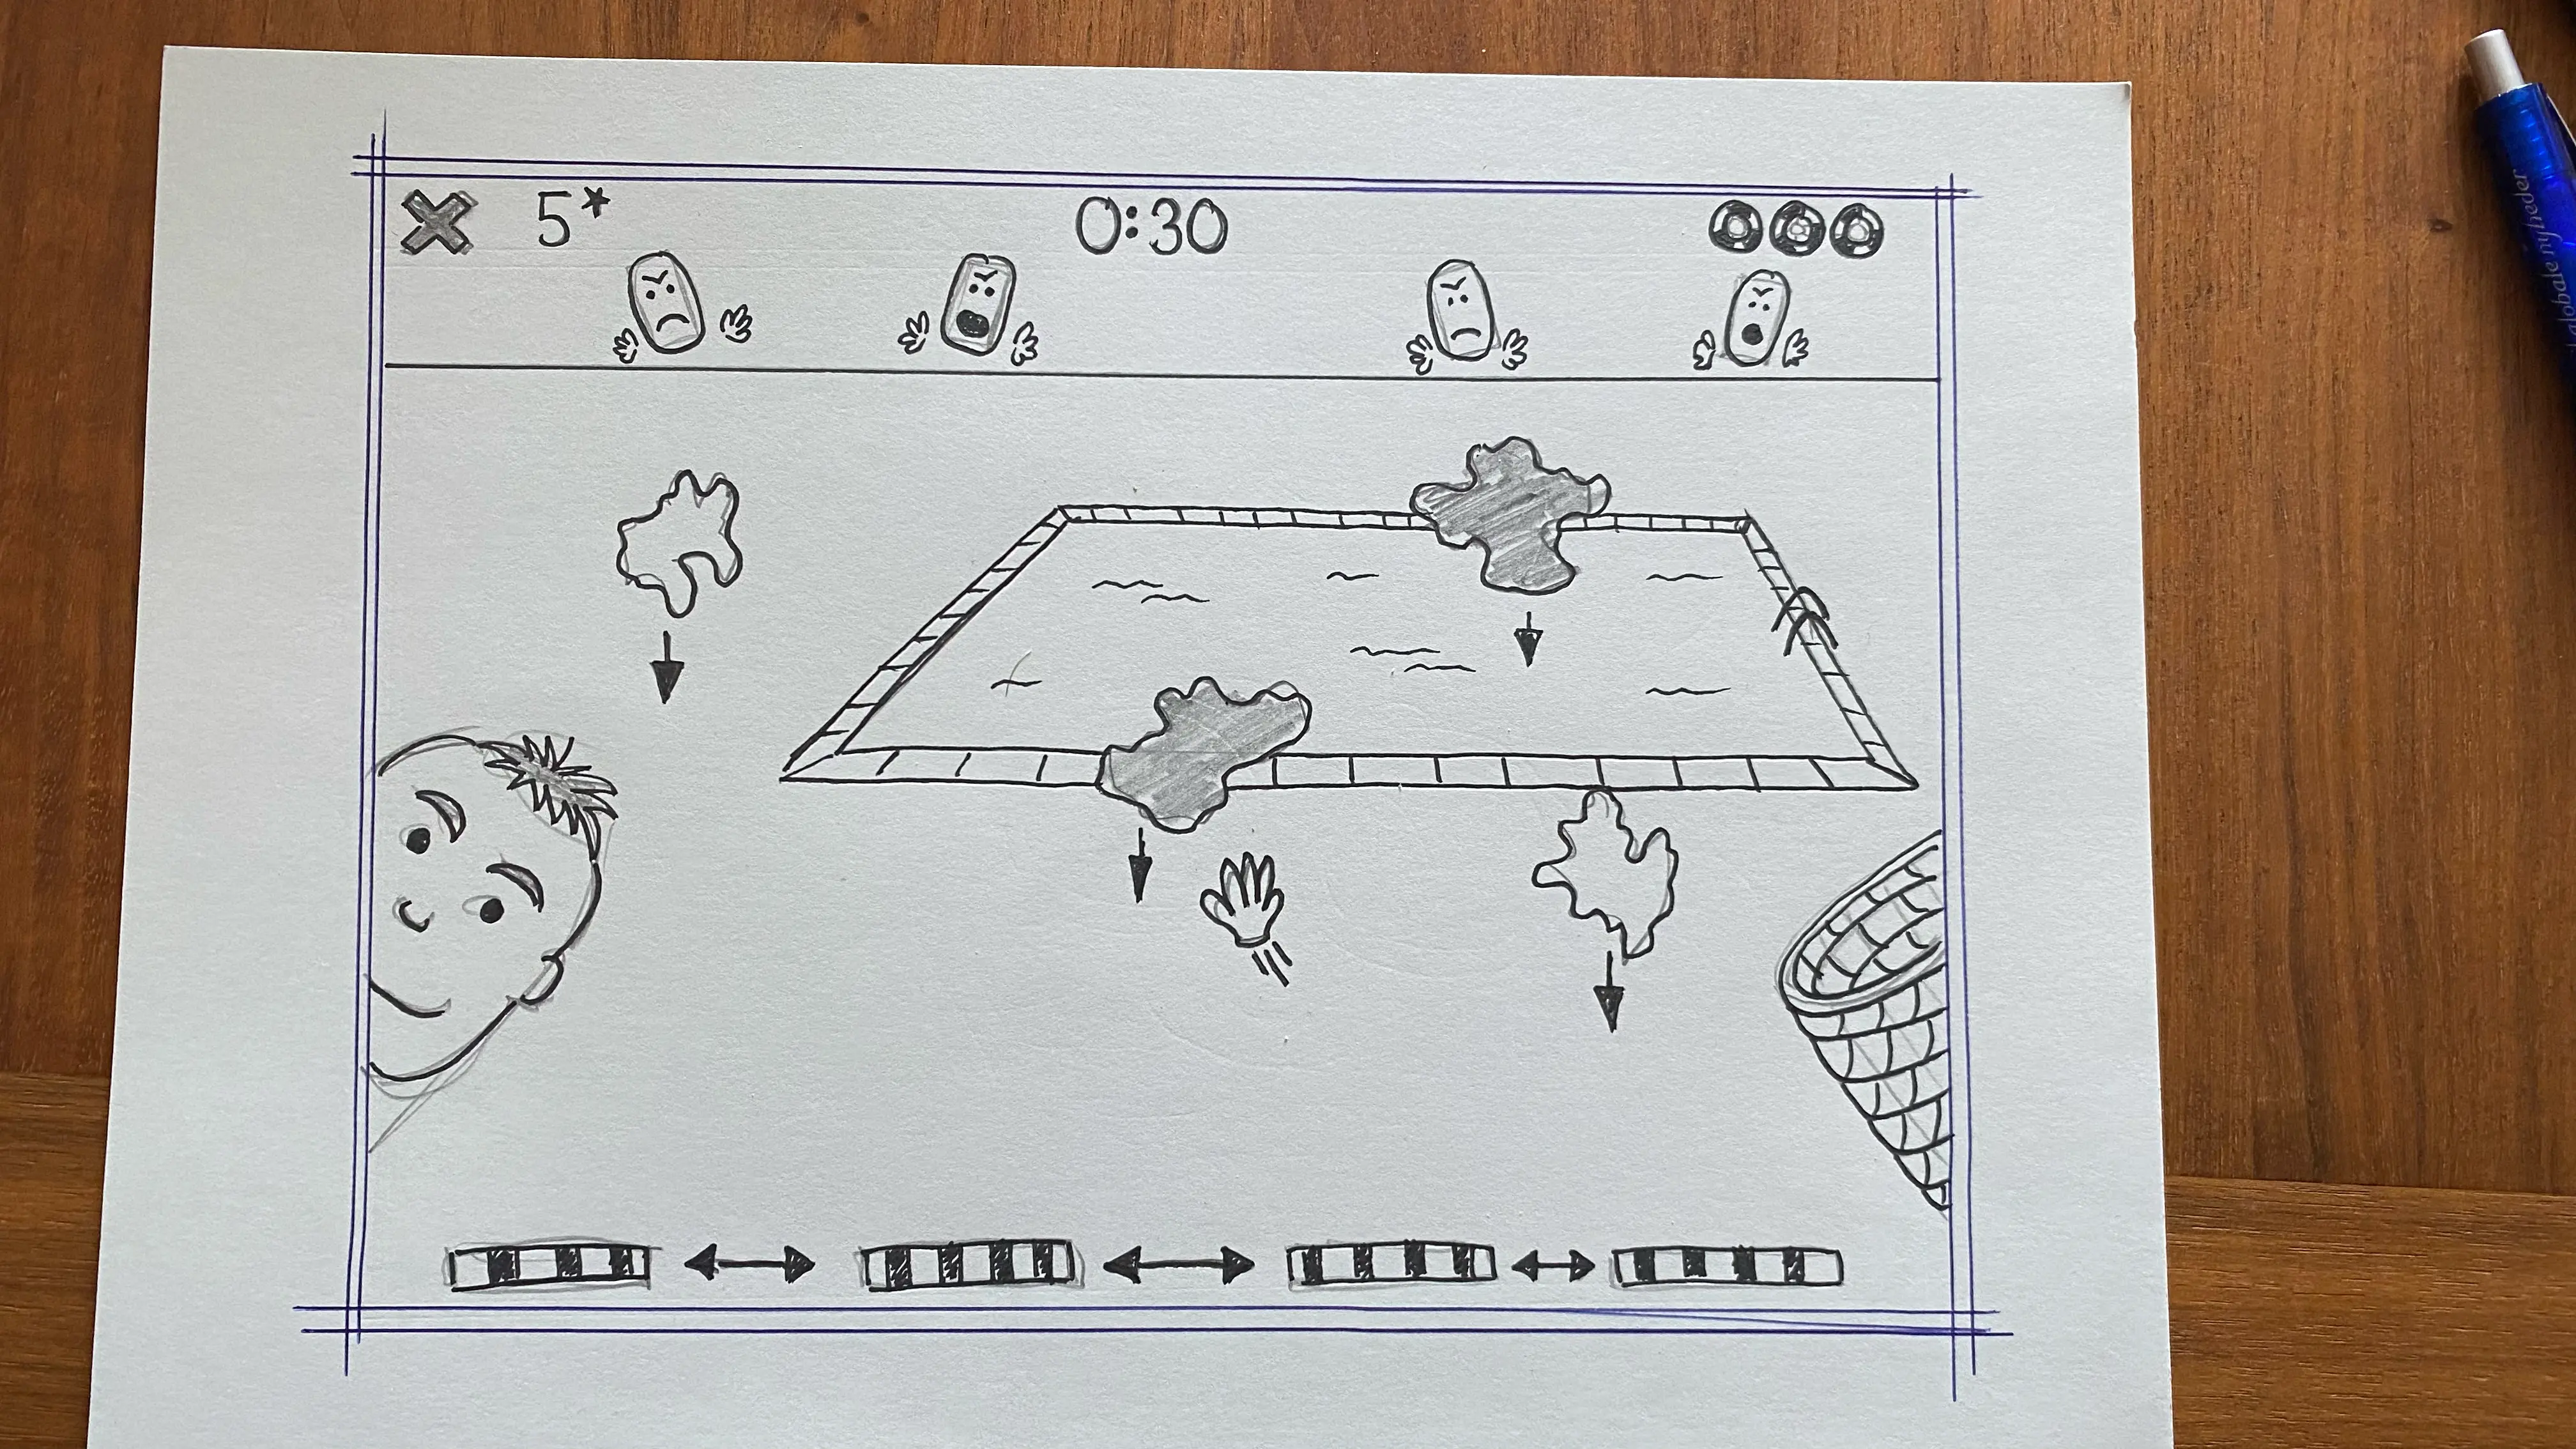 5* 0:30
globale nyheder